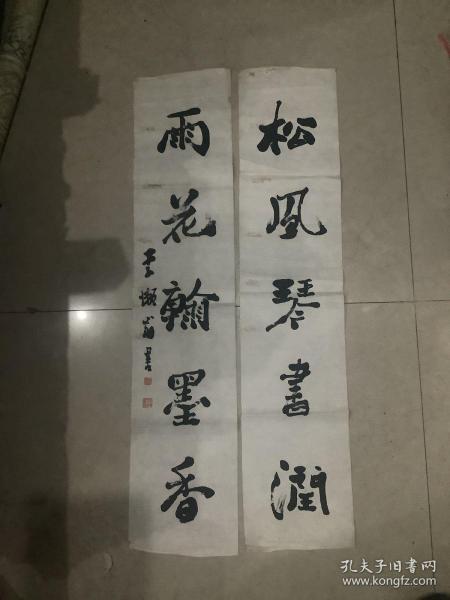 松風琴書潤
雨花翰墨香
孔夫子旧书网
www.kongfz.com